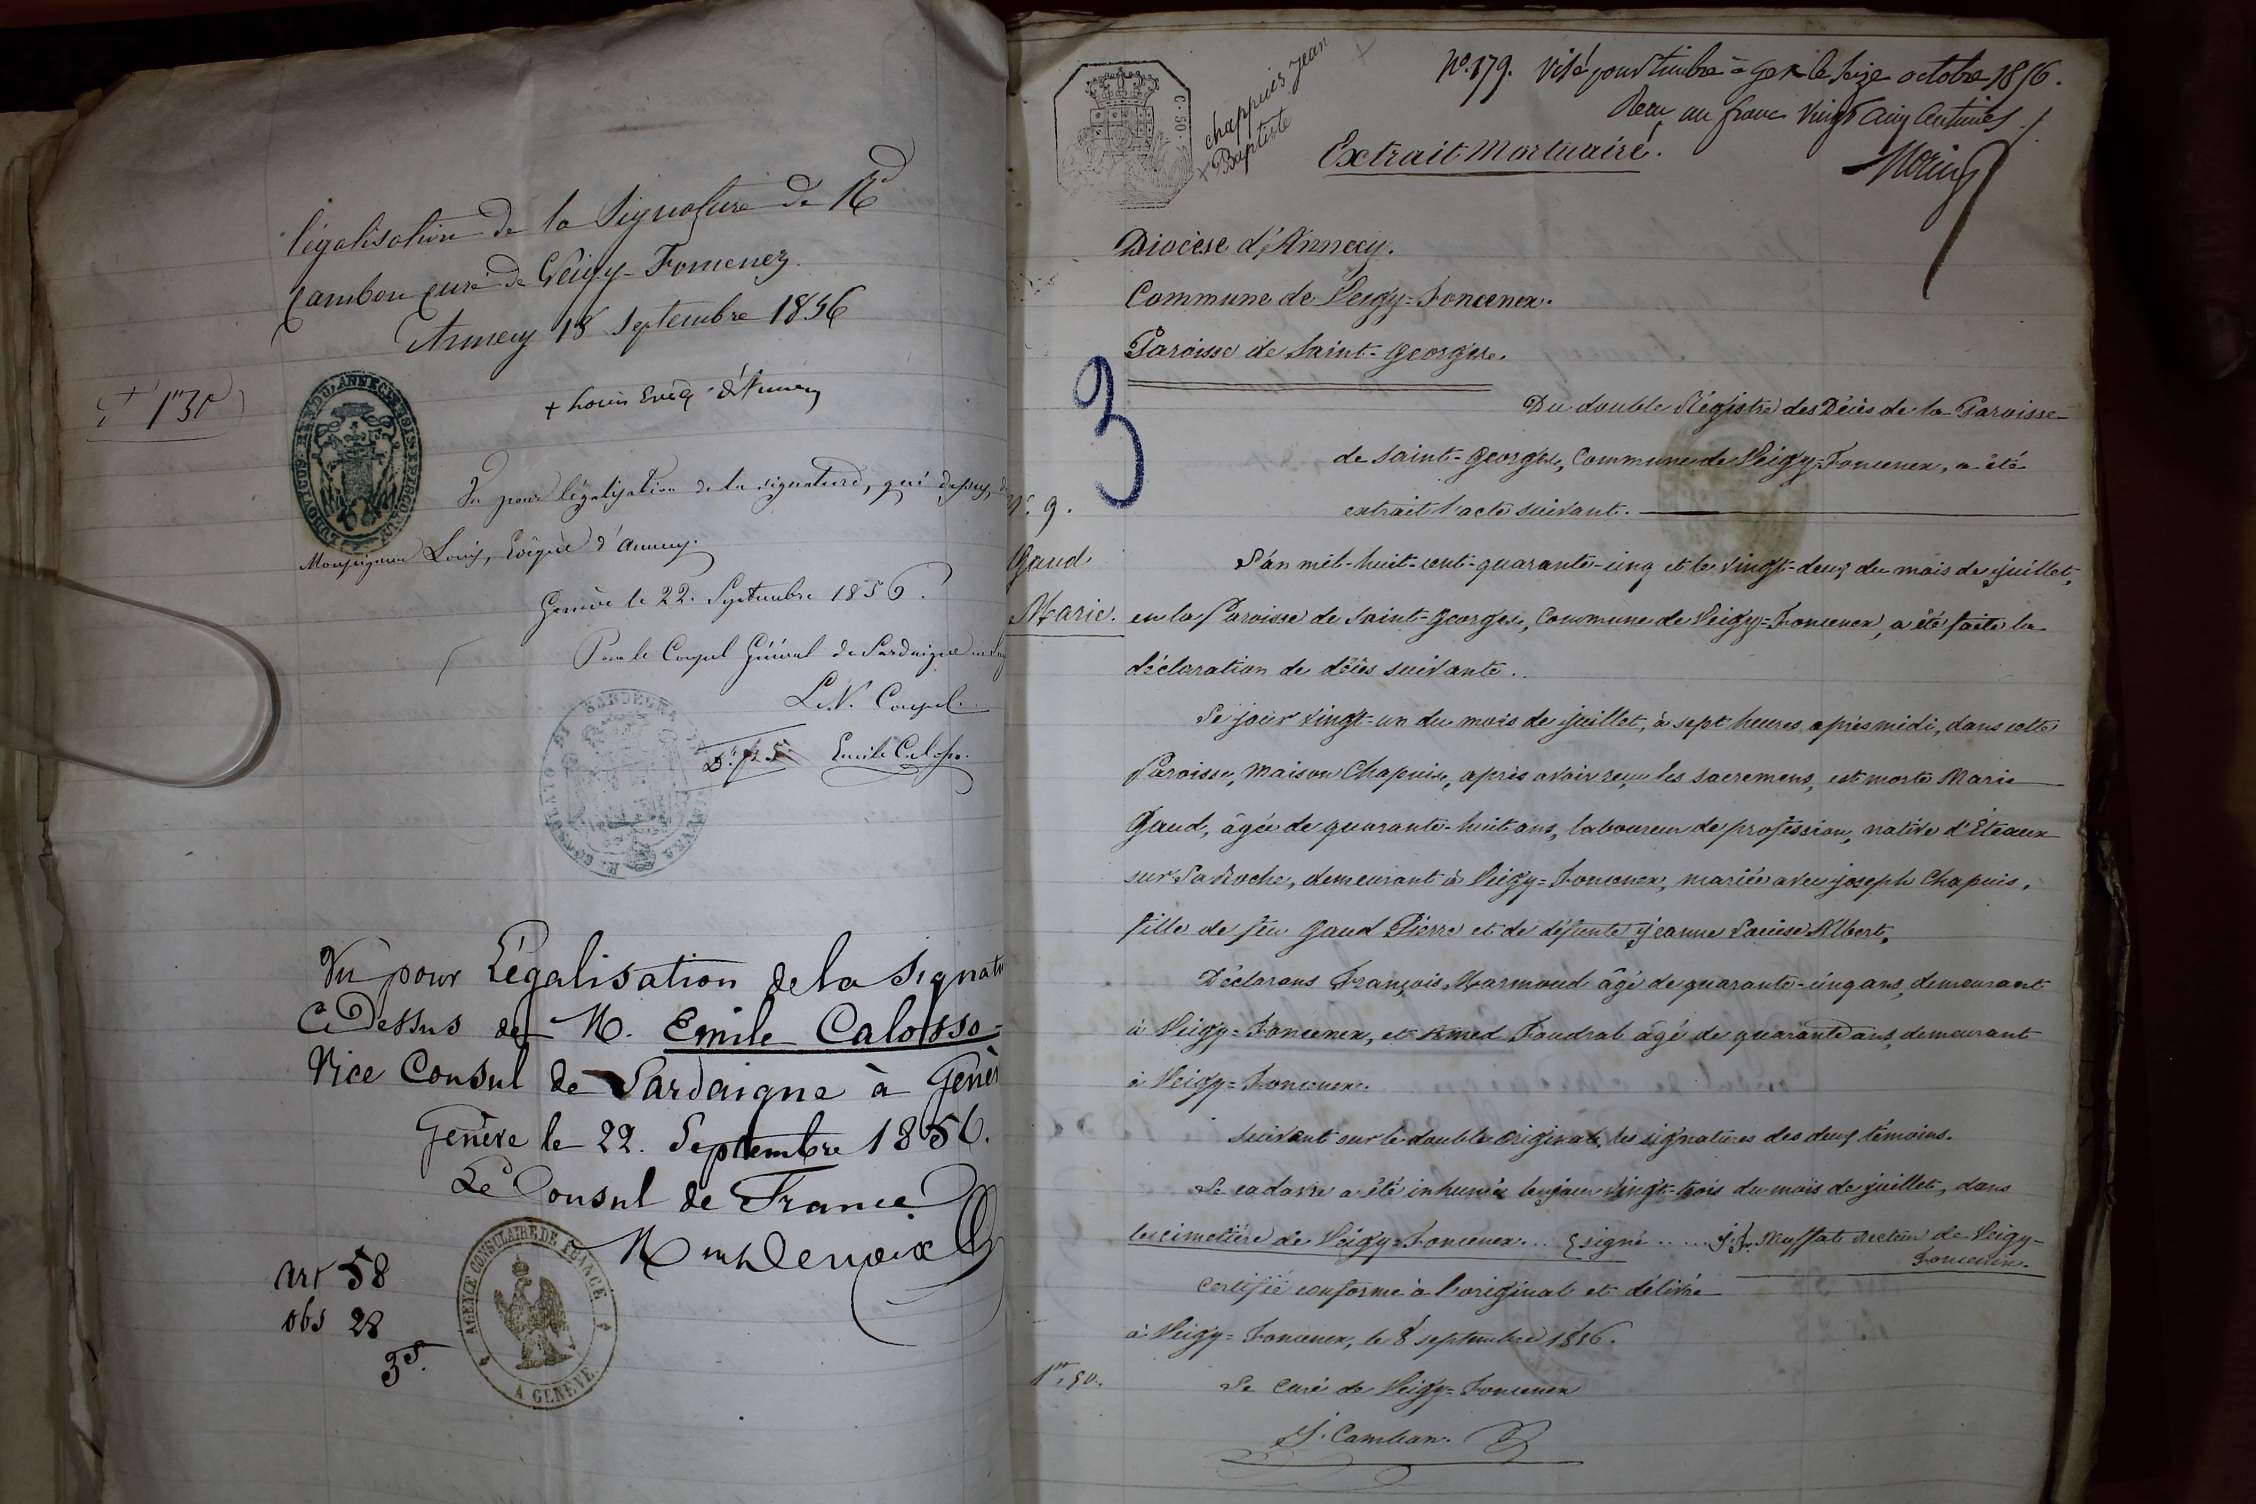 légalisation de la Signature de Rd
Cambon curé de Veigy-Foncenex.
Annecy 18 Septembre 1856
+ Louis Evêq. d'Annecy
1 30
Vu pour légalisation de la signature, qui dessus, de
Monseigneur Louis, Evêque d'Annecy.
Genève le 22. Septembre 1856.
Pour le Consul Général de Sardaigne
Le V. Consul
Emile Calosso.
Vu pour Légalisation de la Signatu
Ci Dessus de M. Emile Calosso
Vice Consul de Sardaigne à Genèv
Genève le 22. Septembre 1856.
Le Consul de France
art 58
obs 28
3f.
AGENCE CONSULAIRE DE FRANCE A GENÈVE
C. 50.
chappuis Jean
+ Baptiste
No. 179. Visé pour timbre à Gex le Seize octobre 1856.
Reçu un franc vingt cinq centimes
Extrait Mortuaire.
Diocèse d'Annecy.
Commune de Veigy=Foncenex.
Paroisse de Saint-Georges.
3
Du double Régistre des Décès de la Paroisse
de Saint-Georges, Commune de Veigy-Foncenex, a été
extrait l'acte suivant.
N.º 9.
Gaud
Marie.
L'an mil-huit-cent-quarante-cinq et le vingt-deux du mois de juillet,
en la Paroisse de Saint-Georges, Commune de Veigy=Foncenex, a été faite la
déclaration de décès suivante.
Le jour vingt-un du mois de juillet, à sept heures après midi, dans cette
Paroisse, maison Chapuis, après avoir reçu les sacremens, est morte Marie
Gaud, âgée de quarante-huit ans, laboureur de profession, native d'Eteaux
sur La Roche, demeurant à Veigy=Foncenex, mariée avec joseph Chapuis,
fille de feu Gaud Pierre et de défunte Jeanne Louise Albert.
Déclarans François Marmoud âgé de quarante-cinq ans, demeurant
à Veigy=Foncenex, et Amed Foudral âgé de quarante ans, demeurant
à Veigy=Foncenex.
Suivent sur le double original, les signatures des deux témoins.
Le cadavre a été inhumé le jour vingt-trois du mois de juillet, dans
le cimetière de Veigy=Foncenex... signé..... J. F. Muffat Recteur de Veigy-
Foncenex.
Certifié conforme à l'original et délivré
à Veigy=Foncenex, le 8 septembre 1856.
1 50.
Le curé de Veigy=Foncenex
J. Cambon.